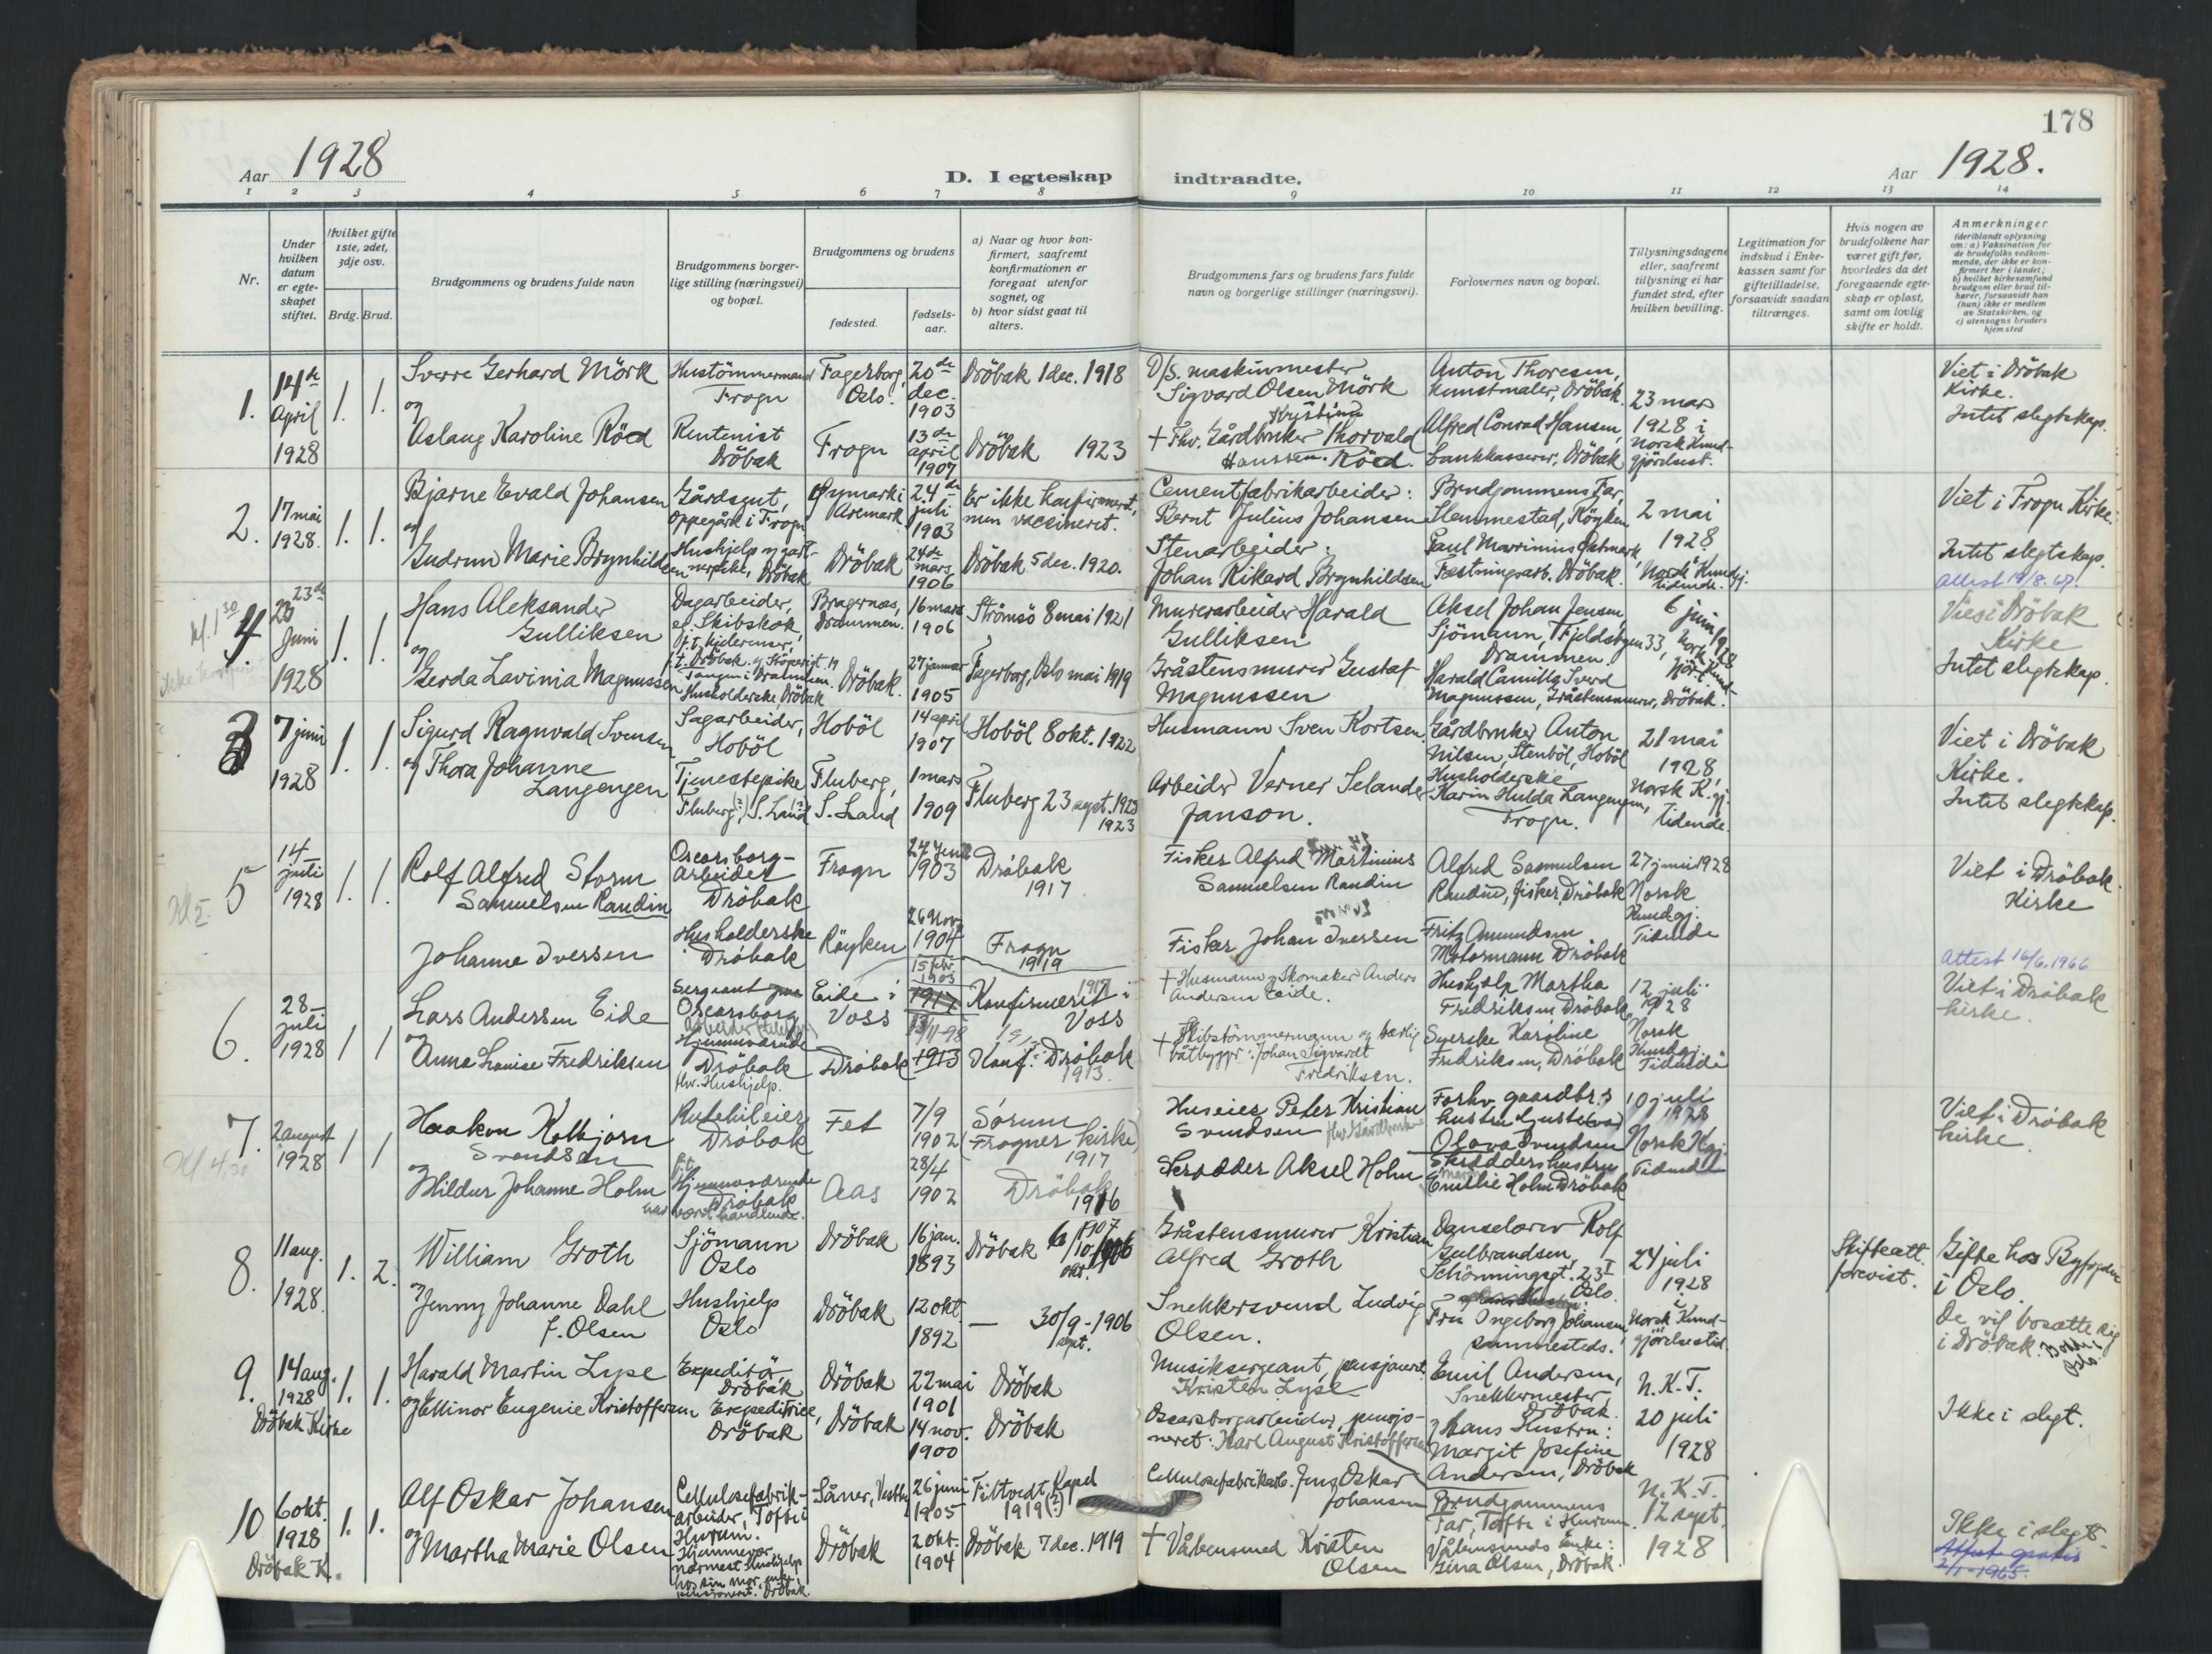 178
Aar 1928
D. I egteskap indtraadte.
Aar 1928.
1 2 3 4 5 6 7 8 9 10 11 12 13 14
Nr.
Under hvilken datum er egteskapet stiftet.
Hvilket gifte 1ste, 2det, 3dje osv.
Brdg. Brud.
Brudgommens og brudens fulde navn
Brudgommens borgerlige stilling (næringsvei) og bopæl.
Brudgommens og brudens
fødested.
fødselsaar.
a) Naar og hvor konfirmert, saafremt konfirmationen er foregaat utenfor sognet, og
b) hvor sidst gaat til alters.
Brudgommens fars og brudens fars fulde navn og borgerlige stillinger (næringsvei).
Forlovernes navn og bopæl.
Tillysningsdagene eller, saafremt tillysning ei har fundet sted, efter hvilken bevilling.
Legitimation for indskud i Enkekassen samt for giftetilladelse, forsaavidt saadan tiltrænges.
Hvis nogen av brudefolkene har været gift før, hvorledes da det foregaaende egteskap er opløst, samt om lovlig skifte er holdt.
Anmerkninger
(deriblandt oplysning om: a) Vaksination for de brudefolks vedkommende, der ikke er konfirmert her i landet;
b) hvilket kirkesamfund brudgom eller brud tilhører, forsaavidt han (hun) ikke er medlem av Statskirken, og
c) utensogns bruders hjemsted
1. 14de April 1928
1. 1.
Sverre Gerhard Mörk
og
Aslaug Karoline Röed
Hustömmermand
Frogn
Rentenist
Dröbak
Fagerborg, Oslo.
Frogn
20de dec. 1903
13de april 1907
Dröbak 1 dec. 1918
Dröbak 1923
D/S. maskinmester
Sigvard Olsen Mörk
Kristian
+ Fhv. Gårdbruker Thorvald
Hanssen. Röed.
Anton Thoresen,
kunstmaler, Dröbak.
Alfred Conrad Hansen,
bankkasserer, Dröbak
23 mars
1928 i
Norsk Kund-
gjörelsest.
Viet i Dröbak
Kirke.
Intet slegtskap.
2. 17 mai 1928.
1. 1.
Bjarne Evald Johansen
og
Gudrun Marie Brynhildsen
Gårdsgut,
Oppegård i Frogn
Hushjelp
Dröbak
Öymark i
Aremark
Dröbak
24de juli 1903
24de mars 1906
Er ikke konfirmert,
men vacsineret.
Dröbak 5 dec. 1920.
Cementfabrikarbeider:
Bernt Julius Johansen
Stenarbeider:
Johan Rikard Brynhildsen
Brudgommens Far,
Slemmestad, Röyken
Paul Marinius
Fæstningsarb. Dröbak.
2 mai
1928
Norsk Kundgj.
tidende.
Viet i Frogn Kirke.
Intet slegtskap.
Attest 19/8. 67.
kl. 1 30
4. 23de
23 Juni 1928
1. 1.
Hans Aleksander
Gulliksen
og
Gerda Lavinia Magnussen
Dagarbeider,
Skibskok,
Husholderske, Dröbak
Bragernæs,
Drammen.
Dröbak.
16 mars 1906
27 januar 1905
Strömsö 8 mai 1921
Fagerborg, Oslo mai 1919
Murerarbeider Harald
Gulliksen
Gråstensmurer Gustaf
Magnussen
Aksel Johan Jensen,
Sjömann, Fjeldsbyen 33,
Drammen.
Harald Camillo Sverd
Magnussen, Gråstensmurer, Dröbak.
6 juni 1928
Vies i Dröbak
Kirke
Intet slegtskap.
3 7 juni 1928
1. 1.
Sigurd Ragnvald Svensen
og Thora Johanne
Langengen
Sagarbeider,
Hoböl
Tjenestepike
Fluberg, S. Land
Hoböl
Fluberg,
S. Land
14 april 1907
1 mars 1909
Hoböl 8 okt. 1922
Fluberg 23 sept. 1923
1923
Husmann Sven Kortsen
Arbeider Verner Selander
Janson.
Gårdbruker Anton
Nilsen, Stenböl, Hoböl
Husholderske
Karin Hulda Langengen,
Frogn.
21 mai
1928,
Norsk K.gj.
tidende.
Viet i Dröbak
Kirke.
Intet slegtskap.
5 14 juli 1928
1. 1.
Rolf Alfred Storm
Samuelsen Raudin
Johanne Iversen
Oscarsborg-
arbeider
Dröbak
Husholderske
Dröbak
Frogn
Röyken
27 juni 1903
26 Nov. 1904
Dröbak
1917
Frogn
1919
Fisker Alfred Martinius
Samuelsen Raudin
Fisker Johan Iversen
Alfred Samuelsen
Raudin, fisker, Dröbak
Fritz Amundsen
Motormann Dröbak
27 juni 1928
Norsk
Kundgj.
Tidende
Viet i Dröbak
Kirke
Attest 16/6. 1966
6. 28 juli 1928
1 1
Lars Andersen Eide
og
Anna Louise Fredriksen
Sergeant
Oscarsborg
Hjemmeværende
Dröbak
fhv. Hushjelp.
Eide i
Voss
Dröbak
15 febr. 1903
1917
13/11-98
1913
Konfirmert i
Voss
Konf: Dröbak
1913.
+ Husmann og Skomaker Anders
Andersen Eide.
+ Skibstömmermann og
båtbygger: Johan Sigvardt
Fredriksen.
Hushjelp Martha
Fredriksen Dröbak
Syerske Karoline
Fredriksen, Dröbak
12 juli
1928
Norsk
Kundgj.
Tidende
Viet i Dröbak
kirke.
7. 2 august 1928
Kl 4.30
1 1
Haakon Kolbjörn
Svendsen
og
Hildur Johanne Holm
Rutebileier
Dröbak
Hjemmeværende
Dröbak
Fet
Aas
7/9 1902
28/4 1902
Sörum
(Frogner kirke)
1917
Dröbak
1916
Huseier Peter Kristian
Svendsen fhv. Gårdbruker
Skrædder Aksel Holm
Forhv. gaardbr.s
hustru
Olava Svendsen
Skrædders hustru
Emilie Holm Dröbak
10 juli
1928
Norsk Kgj.
Tidende
Viet i Dröbak
kirke.
8. 11 aug. 1928.
1. 2.
William Groth
og
Jenny Johanne Dahl
f. Olsen
Sjömann
Oslo
Hushjelp
Oslo
Dröbak
Dröbak
16 jan. 1893
12 okt. 1892
Dröbak 1907
— 30/9 - 1906
sept.
Gråstensmurer Kristian
Alfred Groth
Snekkersvend Ludvig
Olsen.
Danselærer Rolf
Gulbrandsen,
Schönningsgt. 23 I
Oslo.
Fru Ingeborg Johansen
sammesteds.
24 juli
1928
i
Norsk Kund-
gjörelsestid.
Skifteatt.
forevist.
Gifte hos Byfogden
i Oslo.
De vil bosætte sig
i Dröbak.
9. 14 aug. 1928
Dröbak Kirke
1. 1.
Harald Martin Lyse
og Ellinor Eugenie Kristoffersen
Expeditör,
Dröbak
Expeditrice,
Dröbak
Dröbak
Dröbak
22 mai 1901
14 nov. 1900
Dröbak
Dröbak
Musiksergeant, pensjonert.
Kristen Lyse
Oscarsborgarbeider, pensjo-
neret: Karl August Kristoffersen
Emil Andersen,
Snekkermester
Dröbak.
Hans Hustru:
Margit Josefine
Andersen, Dröbak
N.K.T.
20 juli
1928
Ikke i slegt.
10 6 okt. 1928
Dröbak K.
1. 1.
Alf Oskar Johansen
og
Martha Marie Olsen
Cellulosefabrik-
arbeider, Tofte i
Hurum.
Hjemmevær.
nærmest Hushjelp
hos sin mor, enke,
Dröbak.
Såner, Vestby
Dröbak
26 juni 1905
2 okt. 1904
Filtvedt Kapel
1919 (?)
Dröbak 7 dec. 1919
Cellulosefabrikarb. Jens Oskar
Johansen
+ Våbensmed Kristen
Olsen
Brudgommens
Far, Tofte i Hurum.
Våbensmeds Enke:
Gina Olsen, Dröbak.
N.K.T.
12 sept.
1928
Ikke i slegt.
Attest gratis
2/1-1965.